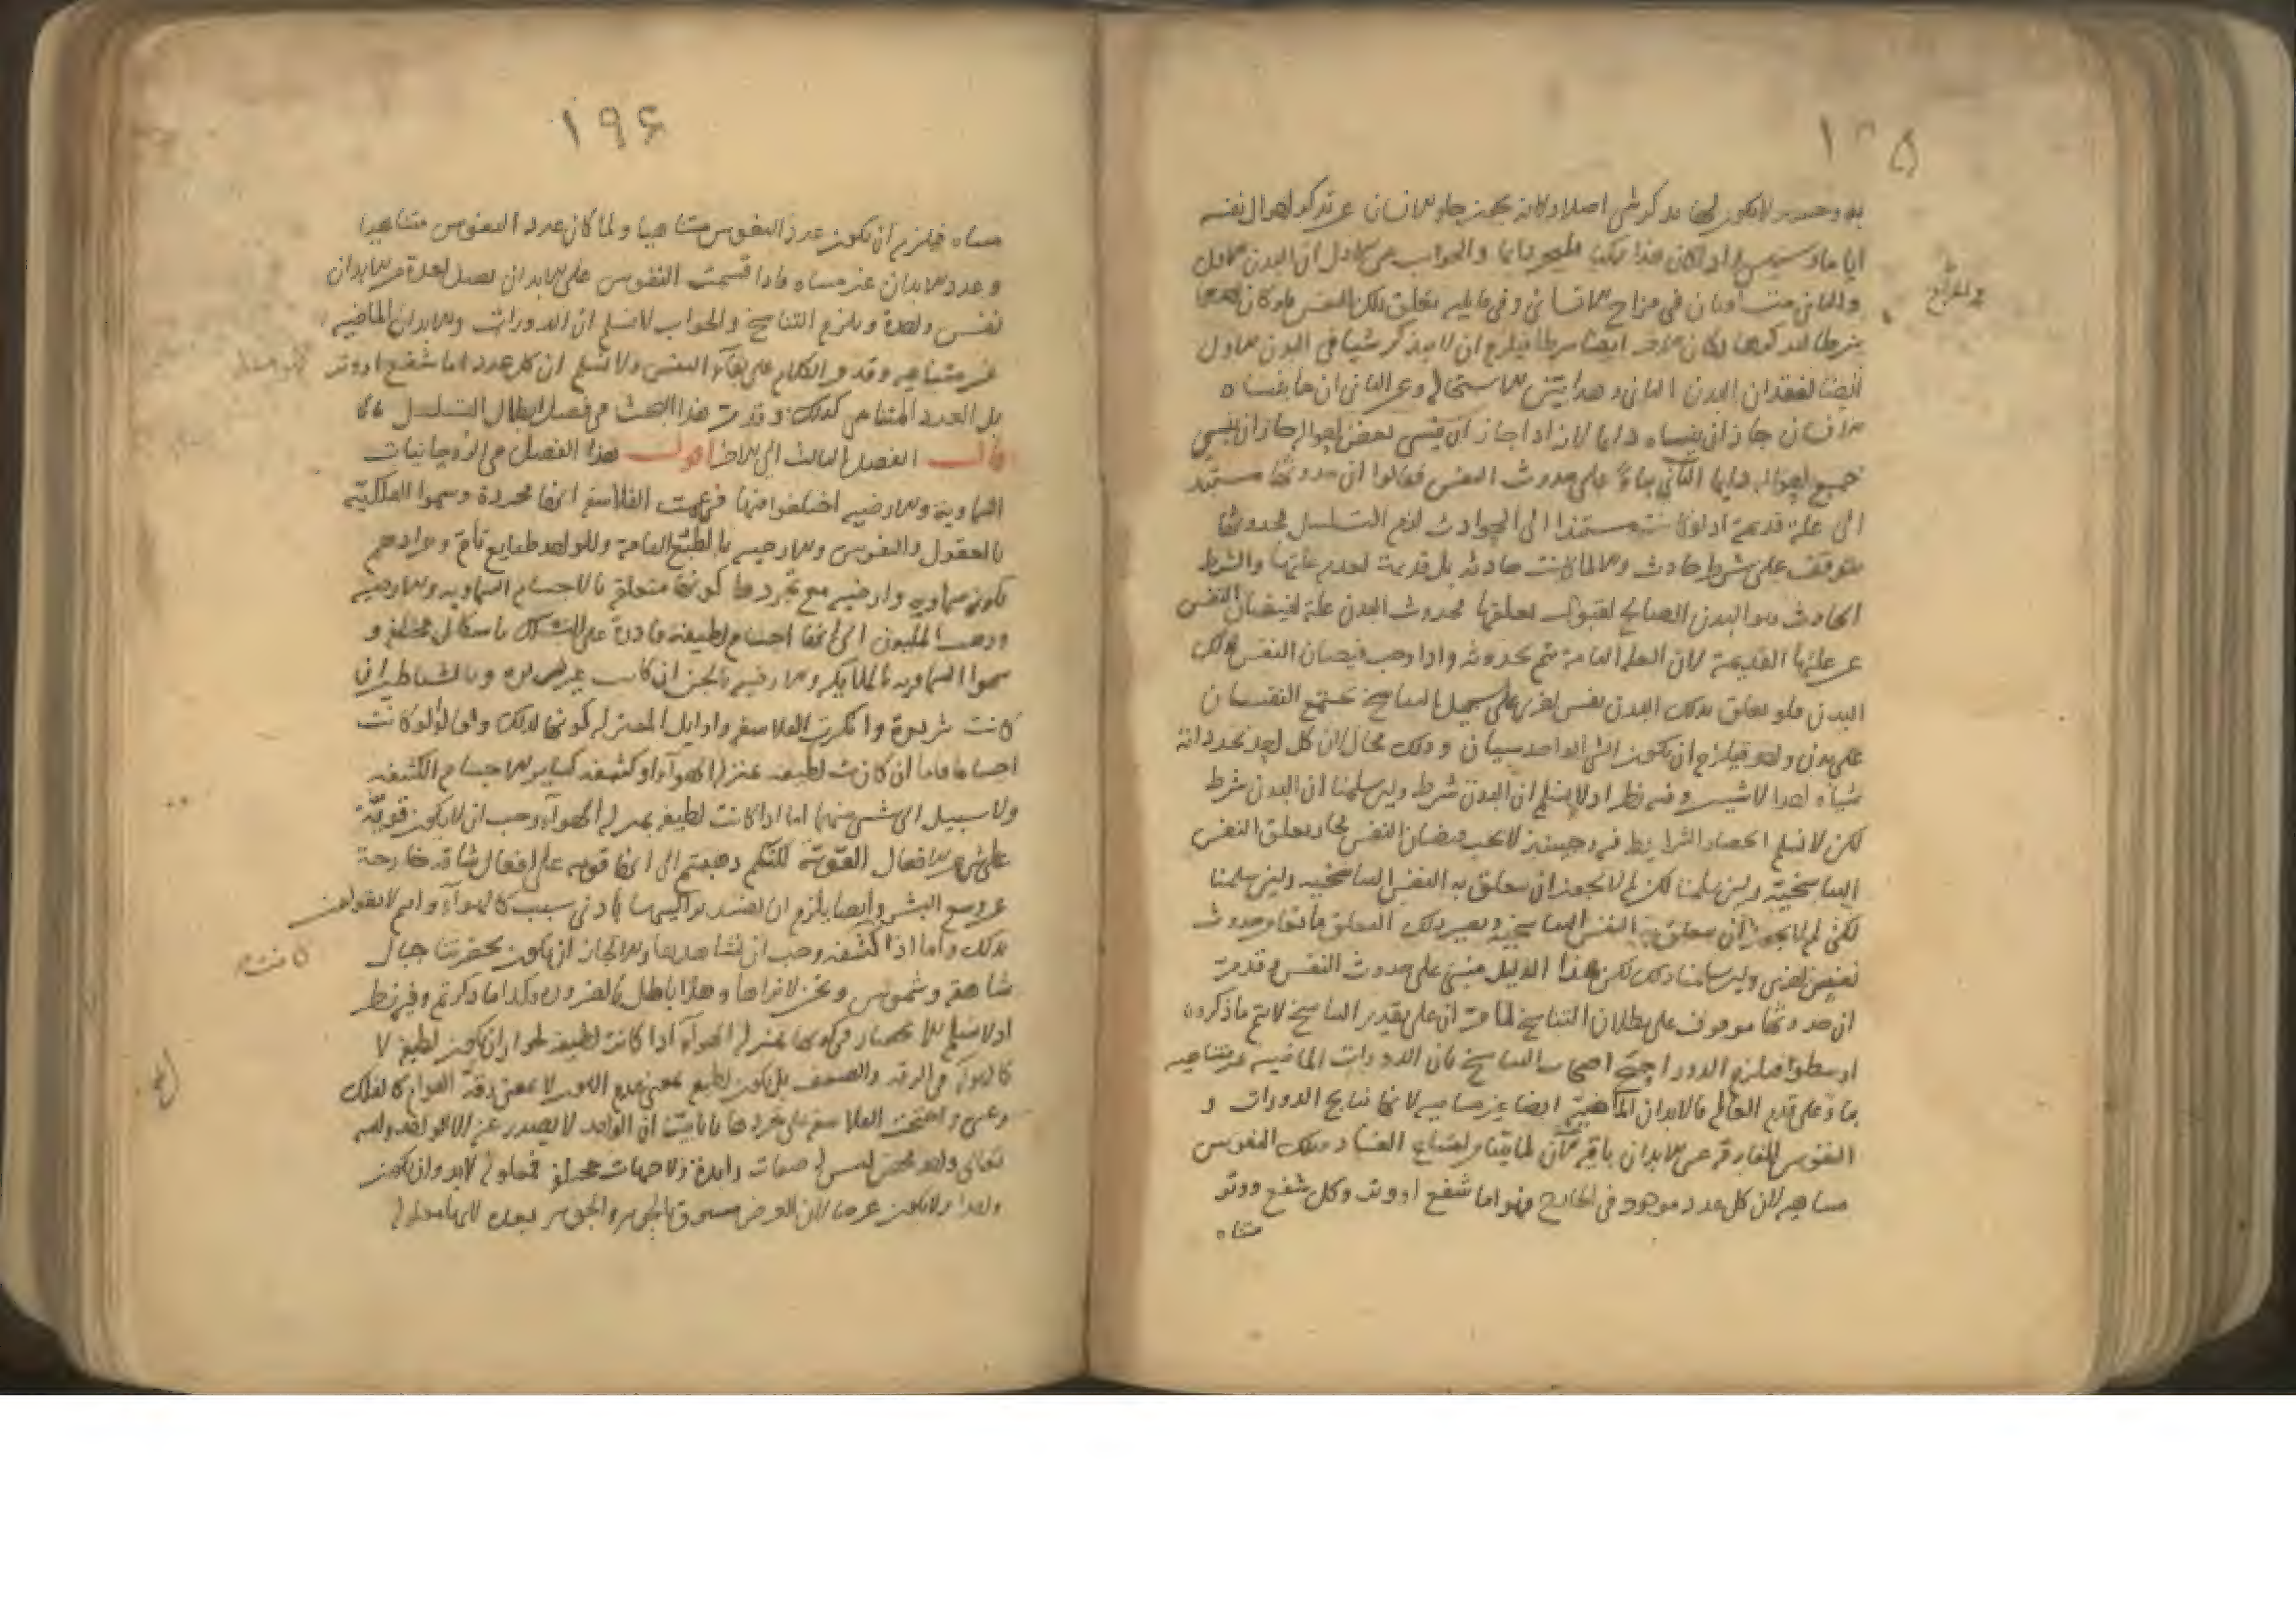 ١٣٥
اياما وسنين اذ لو كان هذا ممكنا فليجز دائما والجواب عن الاول ان البدن الاول
والثاني متساويان في مزاج الانساني وفيما يليه تعلق تلك النفس فلو كان احدهما
شرطا لتذكرها لكان الاخر ايضا شرطا فيلزم ان لا يتذكر شيا في البدن الاول
ايضا لفقدان البدن الثاني وهذا بين الاستحالة وعن الثاني ان ما ينساه
الانسان جاز ان ينساه دايما لانه اذا جاز ان ينسى بعض احواله جاز ان ينسى
جميع احواله دايما الثاني بناء على حدوث النفس فقالوا ان حدوثها مستند
الى علة قديمة اذ لو كانت مستندا الى الحوادث لزم التسلسل فحدوثها
متوقف على شرط حادث والا لما كانت حادثة بل قديمة لقدم علتها والشرط
الحادث هو البدن الصالح لقبول تعلقها فحدوث البدن علة لفيضان النفس
عن علتها القديمة لان العلة التامة تتم بحدوثه واذا وجب فيضان النفس لذلك
البدن فلو تعلق بذلك البدن نفس اخرى على سبيل التناسخ تجتمع النفسان
على بدن واحد فيلزم ان يكون الشي الواحد شيئان وذلك محال لان كل احد يجد ذاته
شيأ واحدا لا شيين وفيه نظر اذ لا نسلم ان البدن شرط ولين سلمنا ان البدن شرط
لكن لا نسلم انحصار الشرايط فيه وحينئذ لا يجب فيضان النفس لجاز تعلق النفس
التناسخية ولين سلمنا لكن لم لا يجوز ان يتعلق به النفس التناسخية ولين سلمنا
لكن لم لا يجوز ان يتعلق به النفس التناسخية ويصير ذلك التعلق مانعا من حدوث
نفس اخرى ولين سلمنا ذلك لكن هذا الدليل مبني على حدوث النفس وقد مر
ان حدوثها موقوف على بطلان التناسخ لما مر ان على تقدير التناسخ لا يتم ما ذكروه
ارسطو فيلزم الدور احتج اصحاب التناسخ بان الدورات الماضية غير متناهية
بناء على قدم العالم فالابدان الماضية ايضا غير متناهية لانها نتايج الدورات و
النفوس المفارقة عن الابدان باقية الآن لما بينا من امتناع الفساد وتلك النفوس
متناهية لان كل عدد موجود في الخارج فهو اما شفع او وتر وكل شفع ووتر
متناه
١٩٦
متناه فيلزم ان يكون عدد النفوس متناهيا ولما كان عدد النفوس متناهيا
وعدد الابدان غير متناه فاذا قسمت النفوس على الابدان تصل لعدة من الابدان
نفس واحدة ويلزم التناسخ والجواب لا نسلم ان الدورات والابدان الماضية
غير متناهية وقد مر الكلام على بقاء النفس ولا نسلم ان كل عدد اما شفع او وتر
بل العدد المتناهي كذلك وقد مر هذا البحث في فصل ابطال التسلسل
قال الفصل الثالث الى الاخر اقول هذا الفصل في الروحانيات
السماوية والارضية اختلفوا فيها فزعمت الفلاسفة انها مجردة وسموا الفلكية
بالعقول والنفوس والارضية بالطبع التامة وللواحد طبايع تام ومرادهم
بكونها سماوية وارضية مع تجردها كونها متعلقة بالاجسام السماوية والارضية
وذهب المليون الى انها اجسام لطيفة قادرة على التشكل باشكال مختلفة و
سموا السماوية بالملايكة والارضية بالجن ان كانت خيرة وبالشياطين ان
كانت شريرة وانكرت الفلاسفة واوايل المعتزلة كونها كذلك وقالوا لو كانت
اجساما فاما ان كانت لطيفة بمنزلة الهواء او كثيفة كساير الاجسام الكثيفة
ولا سبيل الى شي منهما اما اذا كانت لطيفة بمنزلة الهواء وجب ان لا يكون قوية
على شي من الافعال القوية لكنكم ذهبتم الى انها قوية على افعال شاقة خارجة
عن وسع البشر وايضا يلزم ان تفسد تراكيبها بادنى سبب كالهواء وانتم لا تقولون
بذلك واما اذا كثيفة وجب ان نشاهدها والا لجاز ان يكون بحضرتنا جبال
شاهقة وشموس ونحن لا نراها وهذا باطل بالضرورة وكذا ما ذكرتم وفيه نظر
اذ لا نسلم الانحصار في كونها بمنزلة الهواء اذا كانت لطيفة لجواز ان يكون لطيفة لا
كالهواء في الرقة والضعف بل يكون لطيفة بمعنى عدم اللون لا بمعنى رقة القوام كالفلك
وغيره واحتجت الفلاسفة على تجردها بانا بينا ان الواحد لا يصدر عنه الا الواحد والله
تعالى واحد محض ليس له صفات زايدة ولا جهات مختلفة فمعلوله لابد وان يكون
واحدا ولا يكون عرضا لان العرض مسبوق بالجوهر والجوهر
كانت